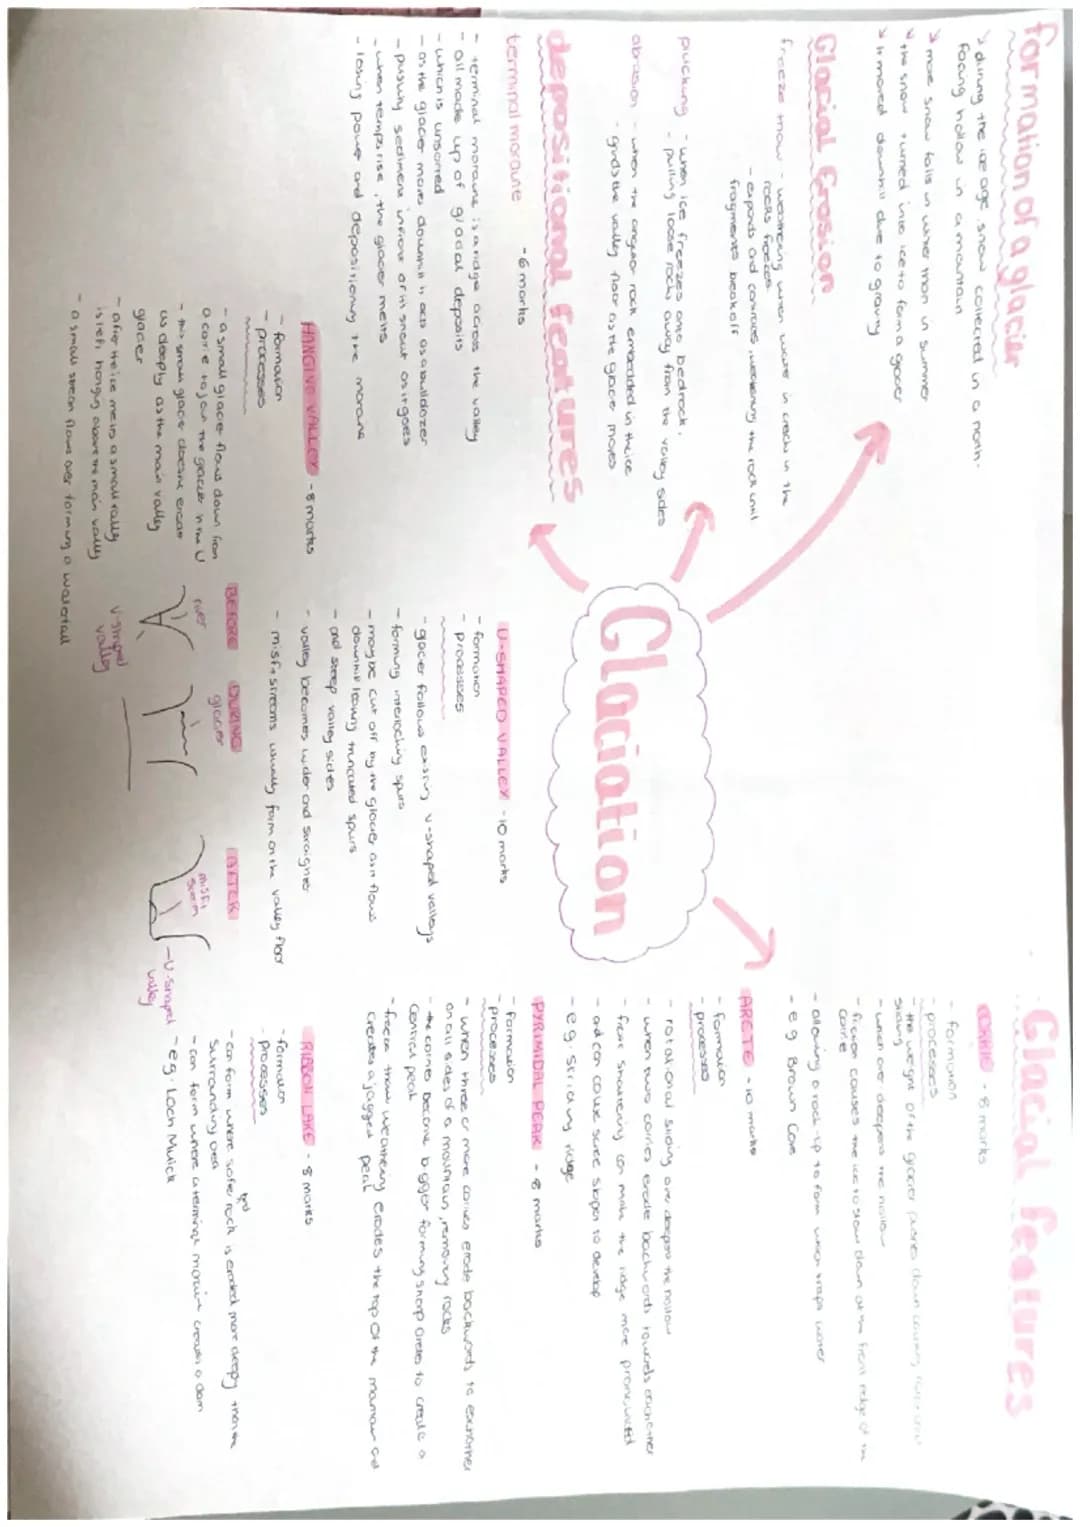 formation of a glacier
↳ during the ice age, snow collected in a north-
facing hollow in a mountain
↳ more snow falls in winter than in summer
↳ the snow turned into ice to form a glacier
↳ it moved downhill due to gravity
Glacial Erosion
freeze thaw - weathering when water in cracks in the
rocks freezes
- expands and contracts, weakening the rock until
fragments break off
plucking - when ice freezes onto bedrock,
- pulling loose rocks away from the valley sides
abrasion - when the angular rock embedded in the ice
- grinds the valley floor as the glacier moves
depositional features
terminal moraine - 6 marks
- terminal moraine is a ridge across the valley
- all made up of glacial deposits
- which is unsorted
- as the glacier moves downhill it acts as a bulldozer
- pushing sediment infront of its snout as it goes
- when temps rise, the glacier melts
- losing power and depositioning the moraine
HANGING VALLEY - 8 marks
- formation
- processes
- a small glacier flows down from
a corrie to join the glacier in the U
- this small glacier doesnt erode
as deeply as the main valley
glacier
- after the ice melts a small valley
is left hanging above the main valley
- a small stream flows over forming a waterfall
Glaciation
U-SHAPED VALLEY - 10 marks
- formation
- processes
- glacier follows existing v-shaped valleys
- forming interlocking spurs
- may be cut off by the glacier as it flows
downhill leaving truncated spurs
- and steep valley sides
- valley becomes wider and straighter
- misfit streams usually form on the valley floor
BEFORE
river
v-shaped
valley
DURING
glacier
AFTER
misfit
stream
- U-shaped
valley
Glacial features
CORRIE - 8 marks
- formation
- processes
- the weight of the glacier pushes down causing rotational
sliding
- which over deepens the hollow
- friction causes the ice to slow down at the front edge of the
corrie
- allowing a rock lip to form which traps water
- eg Brown Cove
ARETE - 10 marks
- formation
- processes
- rotational sliding over deepens the hollow
- when two corries erode backwards towards each other
- frost shattering can make the ridge more pronounced
- and can cause scree slopes to develop
- eg. Striding ridge
PYRIMIDAL PEAK - 8 marks
- formation
- processes
- when three or more corries erode backwards to eachother
on all sides of a mountain, removing rocks
- the corries become bigger forming sharp aretes to create a
central peak
- freeze thaw weathering erodes the top of the mountain and
creates a jagged peak
RIBBON LAKE - 8 marks
- formation
- processes
- can form where softer rock is eroded more deeply than the
surrounding area
- can form where a terminal moraine creates a dam
- eg. Loch Muick